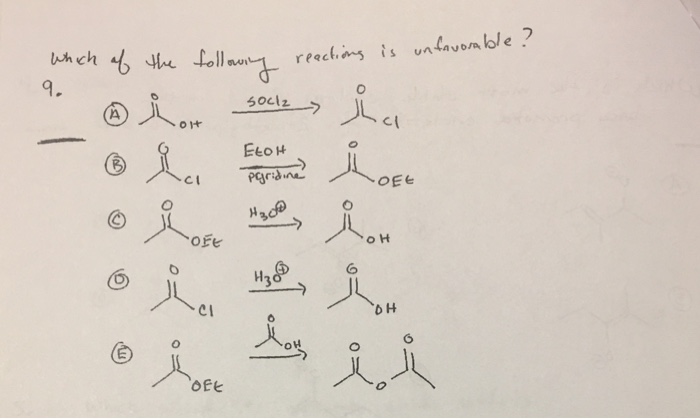 Which of the following reactions is unfavorable?
9.
A O OH SOCl2 O Cl
B O Cl EtOH pyridine O OEt
C O OEt H3O⊕ O OH
D O Cl H3O⊕ O OH
E O OEt O OH O O O